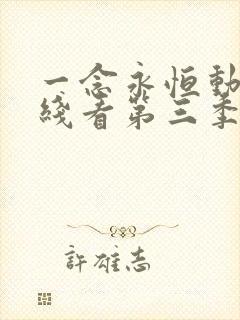 一念永恒動
綫看第三季
許雄志